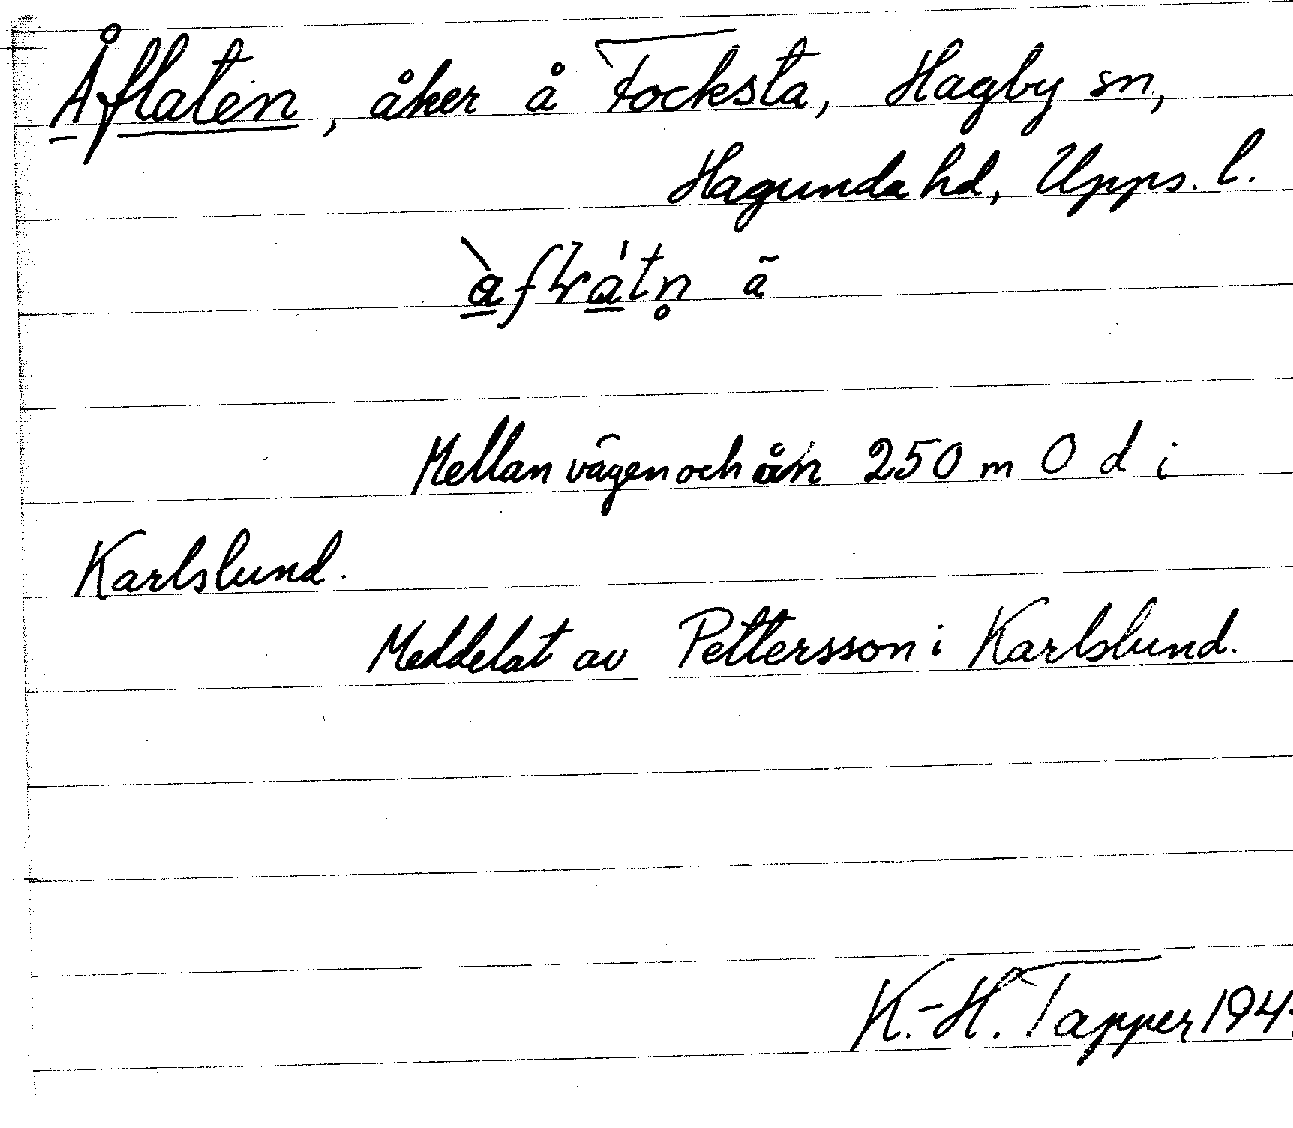 Åflaten, åker å Focksta, Hagby sn,
Hagunda hd, Upps. l.
Mellan vägen och ån 250 m O d i
Karlslund.
Meddelat av Pettersson i Karlslund.
K.-H. Tapper 194